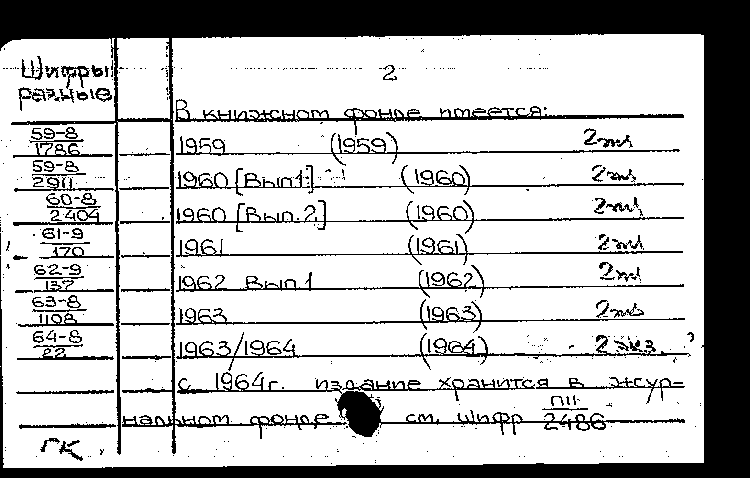 Шифры
разные
2
В книжном фонде имеется:
59-8/1786 1959 (1959) 2 экз
59-8/2911 1960 [Вып.1.] (1960) 2 экз
60-8/2404 1960 [Вып.2.] (1960) 2 экз
61-9/170 1961 (1961) 2 экз
62-9/137 1962 Вып.1 (1962) 2 экз
63-8/1108 1963 (1963) 2 экз
64-8/22 1963/1964 (1964) 2 экз.
с 1964г. издание хранится в жур-
нальном фонде см. шифр ПII/2486
ГК.